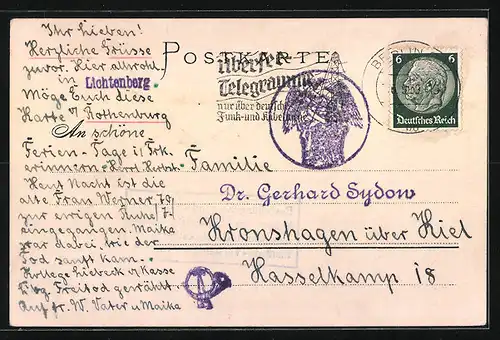 Ihr Lieben!
Herzliche Grüsse
zuvor. Hier allwohl
in Lichtenberg.
Möge Euch diese
Karte v. Rothenburg
An schöne
Ferien-Tage i/
erinnern.
Heut Nacht ist die
alte Frau Werner, 75
zur ewigen Ruhe
eingegangen. Maika
war dabei, wie der
Tod sanft kam.
Kollege Liebeck v/Kasse
Freitod gewählt
Auf fr. W. Vater u Maika
POSTKARTE
Übersee
Telegramme
nur über deutsche
Funk- und Kabelwege
BERLIN
6 6
Deutsches Reich
Familie
Dr. Gerhard Sydow
Kronshagen über Kiel
Hasselkamp 18